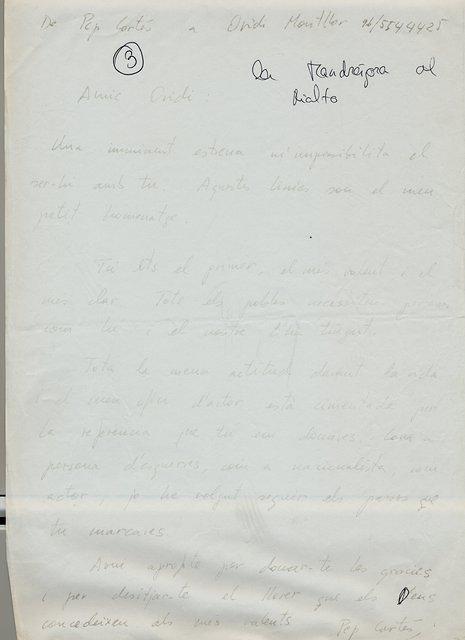 De Pep Cortés a Ovidi Montllor 96/5544425
3
la Mandràgora al
Rialto
Amic Ovidi:
Una imminent estrena m'impossibilita el
ser-hi amb tu. Aquestes línies son el meu
petit homenatge.
Tú ets el primer, el més valent i el
mes clar. Tots els pobles necessiten persones
com tú i el nostre t'ha tingut.
Tota la meua actitud davant la vida
i el meu ofici d'actor està cimentada per
la referencia que tu em donares. Com a
persona d'esquerres, com a nacionalista, com
actor, jo he volgut seguir els passos que
tu marcares.
Avui aprofite per donar-te les gracies
i per desitjar-te el llorer que els Deus
concedeixen als mes valents
Pep Cortés